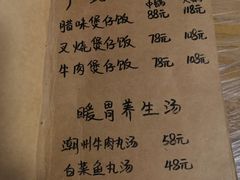 腊味煲仔饭 88元 118元
叉烧煲仔饭 78元 108元
牛肉煲仔饭 78元 108元
暖胃养生汤
潮州牛肉丸汤 58元
白菜鱼丸汤 48元